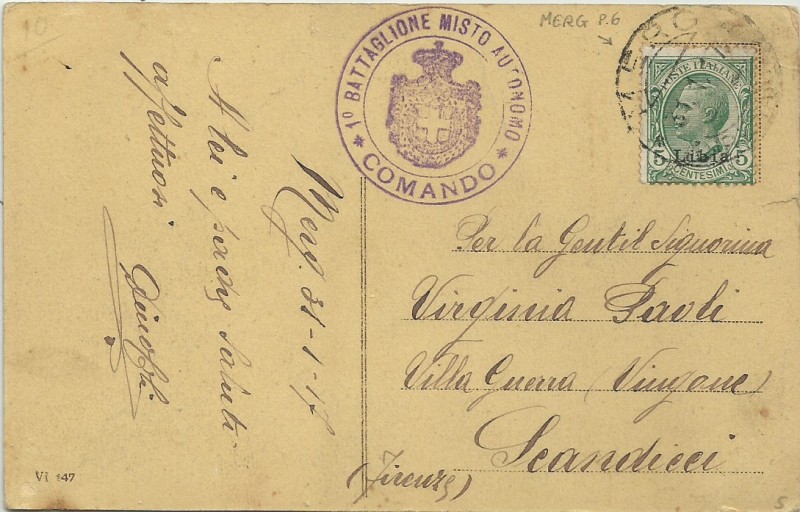 10
MERG P.6
1º BATTAGLIONE MISTO AUTONOMO
* COMANDO *
POSTE ITALIANE
Libia
5 5
CENTESIMI
Merg. 31-1-17
A lei e
saluti
affettuosi
Per la Gentil Signorina
Virginia Paoli
Villa Guerra (Vingone)
Scandicci
(Firenze)
VI 147
S